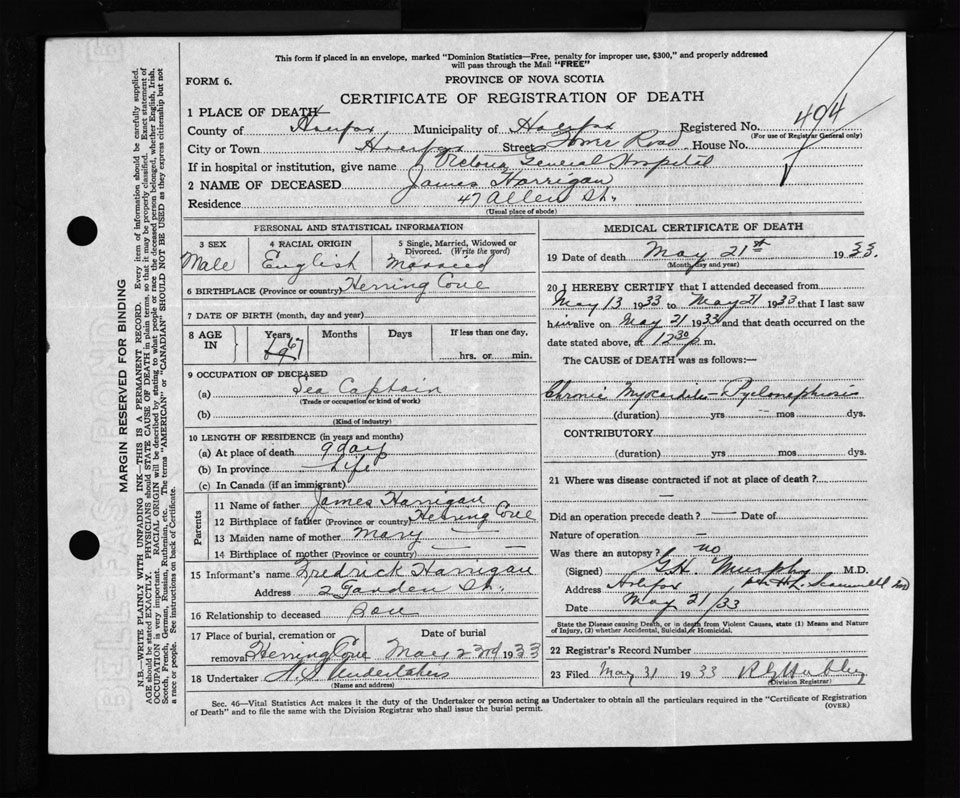 This form if placed in an envelope, marked "Dominion Statistics—Free, penalty for improper use, $300," and properly addressed
will pass through the Mail "FREE"
FORM 6.
PROVINCE OF NOVA SCOTIA
CERTIFICATE OF REGISTRATION OF DEATH
1 PLACE OF DEATH
County of Halifax, Municipality of Halifax Registered No. 494
(For use of Registrar General only)
City or Town Halifax Street Tower Road House No.
If in hospital or institution, give name Victoria General Hospital
2 NAME OF DECEASED James Harrigan
Residence 47 Allen St.
(Usual place of abode)
PERSONAL AND STATISTICAL INFORMATION
3 SEX 4 RACIAL ORIGIN 5 Single, Married, Widowed or
Divorced. (Write the word)
Male English Married
6 BIRTHPLACE (Province or country) Herring Cove
7 DATE OF BIRTH (month, day and year)
8 AGE IN Years Months Days If less than one day,
67 hrs. or min.
9 OCCUPATION OF DECEASED
(a) Sea Captain
(Trade or occupation or kind of work)
(b)
(Kind of industry)
10 LENGTH OF RESIDENCE (in years and months)
(a) At place of death 9 days
(b) In province Life
(c) In Canada (if an immigrant)
Parents
11 Name of father James Harrigan
12 Birthplace of father (Province or country) Herring Cove
13 Maiden name of mother Mary —
14 Birthplace of mother (Province or country) — —
15 Informant's name Fredrick Harrigan
Address 2 Garden St.
16 Relationship to deceased Son
17 Place of burial, cremation or removal Date of burial
Herring Cove May 23rd 1933
18 Undertaker N.S Undertakers
(Name and address)
MEDICAL CERTIFICATE OF DEATH
19 Date of death May 21st 1933.
(Month, day and year)
20 I HEREBY CERTIFY that I attended deceased from
May 13 1933 to May 21 1933 that I last saw
him alive on May 21 1933 and that death occurred on the
date stated above, at 12 30 p m.
The CAUSE of DEATH was as follows:—
Chronic Myocarditis — Pyelonephrosis
(duration) yrs — mos dys.
CONTRIBUTORY
(duration) yrs mos dys.
21 Where was disease contracted if not at place of death?
—
Did an operation precede death? — Date of
Nature of operation —
Was there an autopsy? no
(Signed) G.H. Murphy M.D.
Address Halifax
Date May 21/33
State the Disease causing Death, or in death from Violent Causes, state (1) Means and Nature
of Injury, (2) whether Accidental, Suicidal or Homicidal.
22 Registrar's Record Number
23 Filed May 31 1933
(Division Registrar)
Sec. 46—Vital Statistics Act makes it the duty of the Undertaker or person acting as Undertaker to obtain all the particulars required in the "Certificate of Registration
of Death" and to file the same with the Division Registrar who shall issue the burial permit.
(OVER)
MARGIN RESERVED FOR BINDING
N.B.—WRITE PLAINLY WITH UNFADING INK—THIS IS A PERMANENT RECORD. Every item of information should be carefully supplied.
AGE should be stated EXACTLY. PHYSICIANS should STATE CAUSE OF DEATH in plain terms, so that it may be properly classified. Exact statement of
OCCUPATION is very important. RACIAL ORIGIN will be described by stating to what people or race the deceased person belonged, whether English, Irish,
Scotch, French, German, Russian, Ruthenian, etc. The terms "AMERICAN" or "CANADIAN" SHOULD NOT BE USED as they express citizenship but not
a race or people. See instructions on back of Certificate.